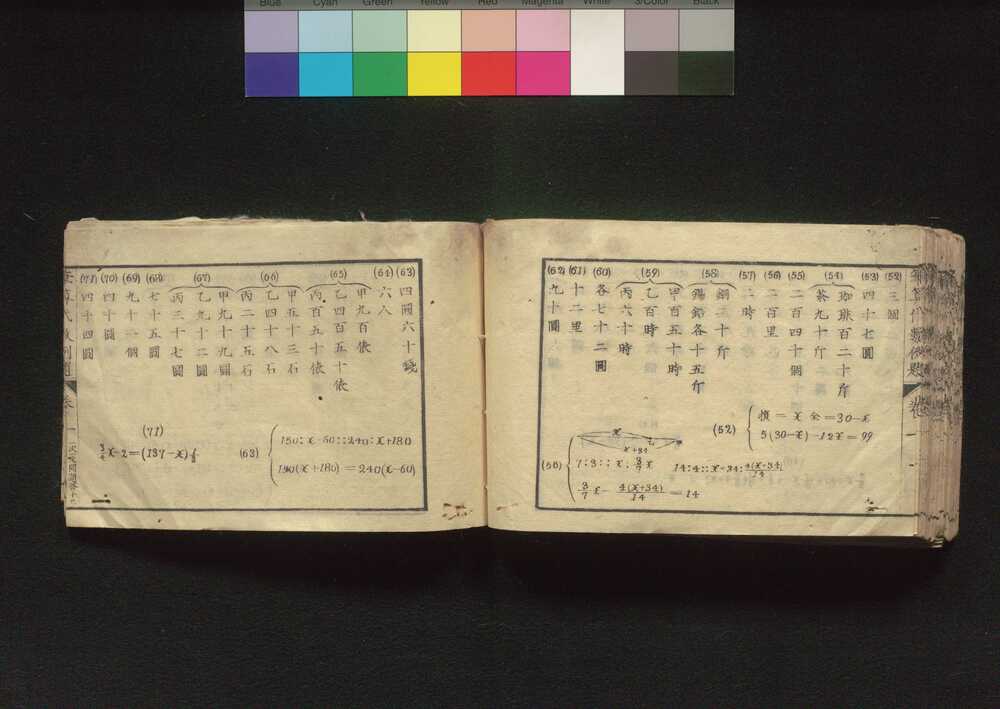 Blue Cyan Green Yellow Red Magenta White 3/Color Black
(52) 三個
(53) 四十七圓
(54) 珈琲百二十斤
茶九十斤
(55) 二百四十個
(56) 二百里
(57) 二時
(58) 銅二十斤
錫鉛各十五斤
(59) 甲百五十時
乙百時
丙六十時
(60) 各七十二圓
(61) 十二里
(62) 九十圓
(52) 損=x 全=30-x
5(30-x)-12x=99
(56) x
x+34
7:3::x:3/7x 14:4::x+34:4(x+34)/14
3/7x-4(x+34)/14=14
(63) 四圓六十錢
(64) 六八
(65) 甲九百俵
乙四百五十俵
丙百五十俵
(66) 甲五十三石
乙四十八石
丙二十五石
(67) 甲九十九圓
乙九十二圓
丙三十七圓
(68) 七十五圓
(69) 九十一個
(70) 四十圓
(71) 四十四圓
(63) 150:x-60::240:x+180
190(x+180)=240(x-60)
(71)
3/4x-2=(137-x)
筆算代數例題 卷一